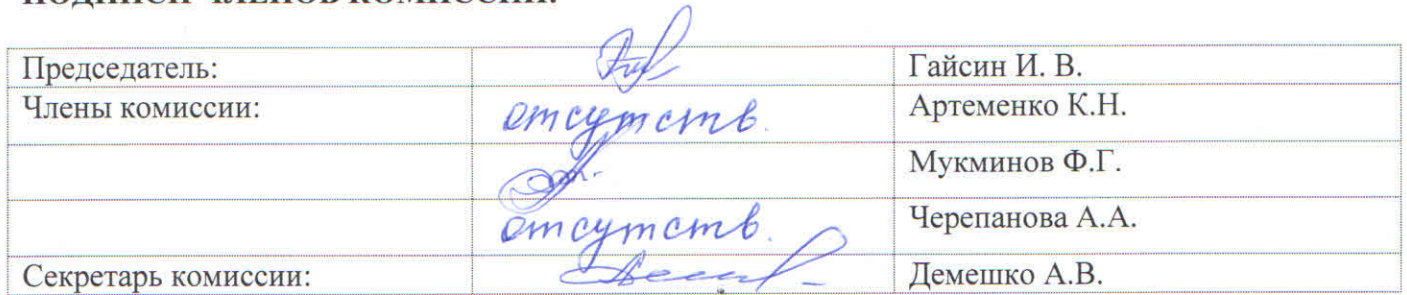 ПОДПИСИ ЧЛЕНОВ КОМИССИИ:
Председатель: Гайсин И. В.
Члены комиссии: отсутств. Артеменко К.Н.
Мукминов Ф.Г.
отсутств. Черепанова А.А.
Секретарь комиссии: Демешко А.В.